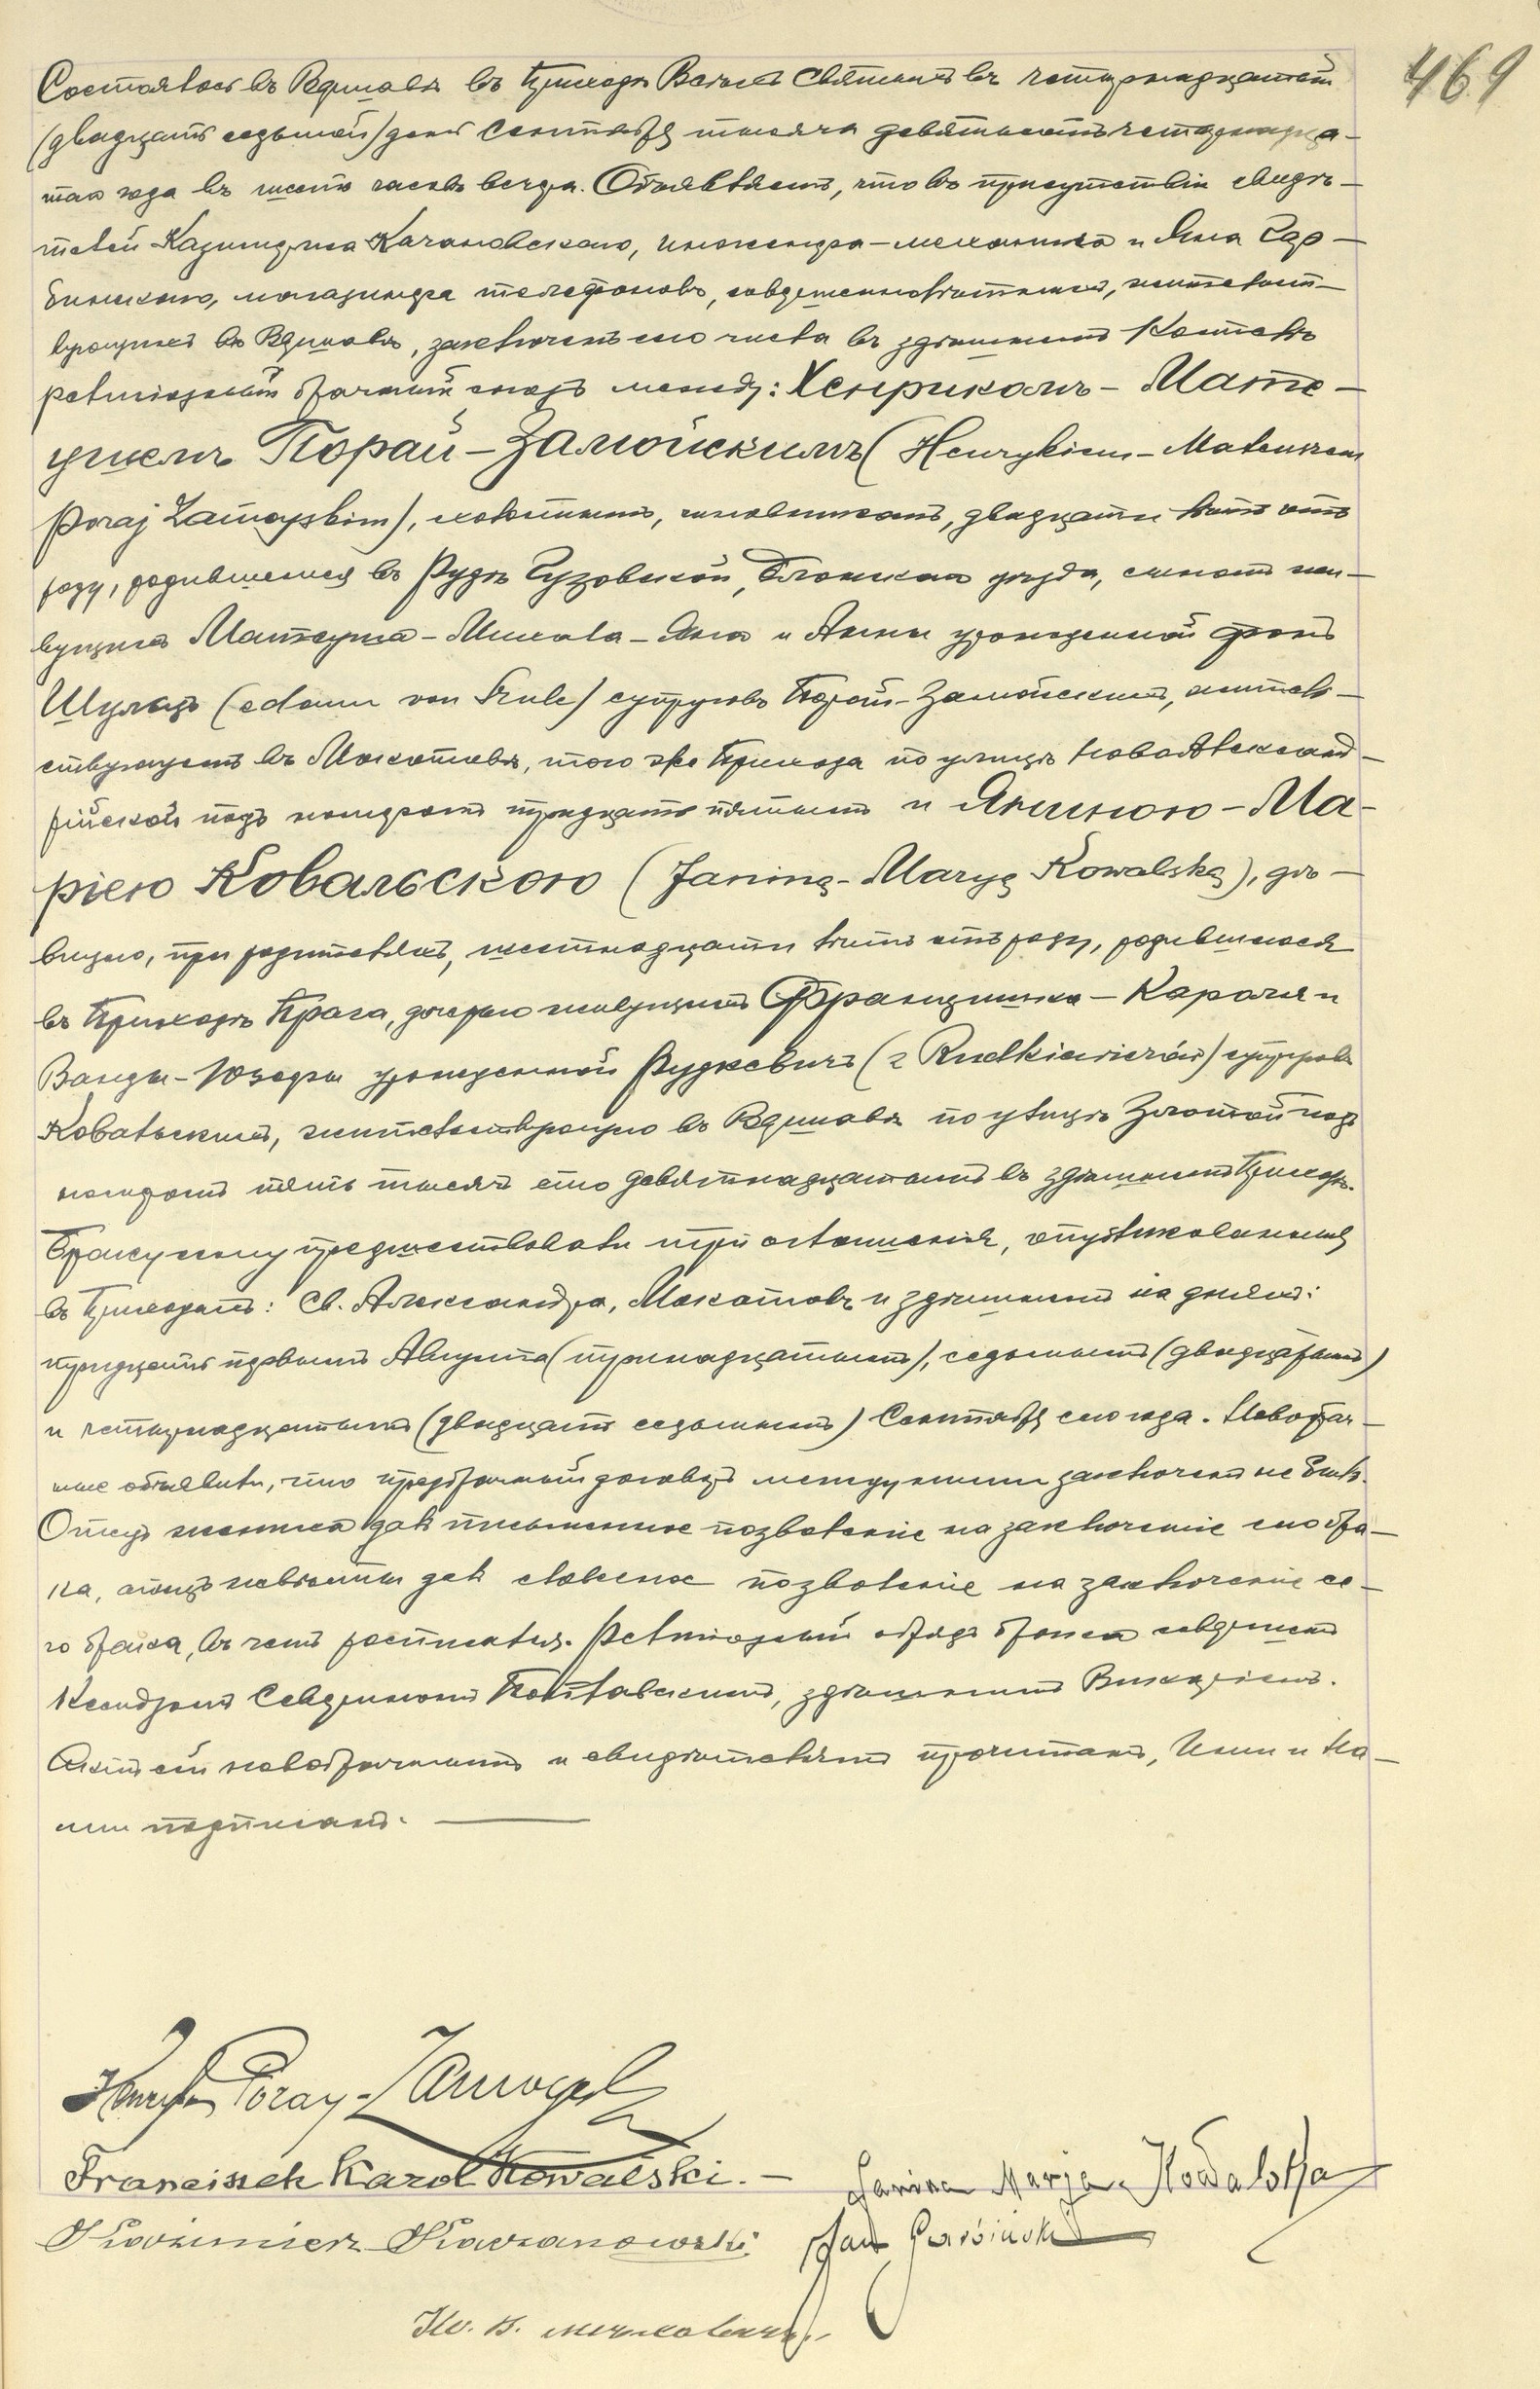 469
Состоялось въ Варшавѣ въ Приходѣ Всѣхъ Святыхъ въ четырнадцатый
(двадцать седьмой) день Сентября тысяча девятьсотъ четырнадца-
таго года въ шесть часовъ вечера. Объявляемъ, что въ присутствіи свидѣ-
телей Казимѣриса Качановскаго, инженера-механика и Яна Гар-
бинскаго, магазинера телефоновъ, совершеннолѣтнихъ, жительст-
вующихъ въ Варшавѣ, заключенъ сего числа въ здѣшнемъ Костелѣ
религіозный брачный союзъ между: Хенрикомъ-Мате-
ушемъ Порай-Замойскимъ (Henrykiem-Mateuszem
Poraj Zamoyskim), холостымъ, чиновникомъ, двадцати лѣтъ отъ
роду, родившемся въ Рудѣ Гузовской, Блонскаго уѣзда, сыномъ жи-
вущихъ Матеуша-Михала-Яна и Анны урожденной фонъ
Шульцъ (z domu von Szulc) супруговъ Порай-Замойскихъ, житель-
ствующемъ въ Мокотовѣ, того же Прихода по улицѣ НовоАлександ-
рійской подъ номеромъ тридцать пятымъ и Яниною-Ма-
ріею Ковальскою (Janiną-Maryą Kowalską), дѣ-
вицею, при родителяхъ, шестнадцати лѣтъ отъ роду, родившеюся
въ Приходѣ Прага, дочерью живущихъ Францишка-Кароля и
Ванды-Юзефы урожденной Рудкевичъ (z Rudkiewiczów) супруговъ
Ковальскихъ, жительствующею въ Варшавѣ по улицѣ Златой подъ
номеромъ пять тысячъ сто девятнадцатымъ въ здѣшнемъ Приходѣ.
Браку сему предшествовали три оглашенія, опубликованныя
въ Приходахъ: Св. Александра, Мокотовъ и здѣшнемъ на дняхъ:
тридцать первымъ Августа (тринадцатымъ), седьмымъ (двадцатымъ)
и четырнадцатымъ (двадцать седьмымъ) Сентября сего года. Новобрач-
ные объявили, что предбрачный договоръ между ними заключенъ не былъ.
Отецъ жениха далъ письменное позволеніе на заключеніе сего бра-
ка, отецъ невѣсты далъ словесное позволеніе на заключеніе се-
го брака, въ чемъ росписался. Религіозный обрядъ брака совершенъ
Ксендзомъ Северыномъ Поплавскимъ, здѣшнимъ Викаріемъ.
Актъ сей новобрачнымъ и свидѣтелямъ прочитанъ, Ими и На-
ми подписанъ.
Henryk Poray-Zamoyski
Franciszek Karol Kowalski. -
Janina Marja Kowalska
Kazimierz Kaczanowski
Jan Garbiński